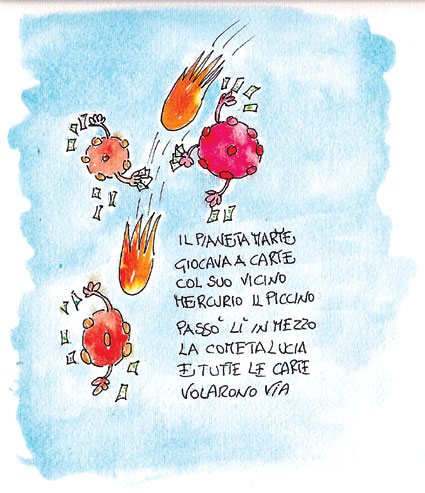 IL PIANETA MARTE
GIOCAVA A CARTE
COL SUO VICINO
MERCURIO IL PICCINO
PASSO' LI' IN MEZZO
LA COMETA LUCIA
E TUTTE LE CARTE
VOLARONO VIA